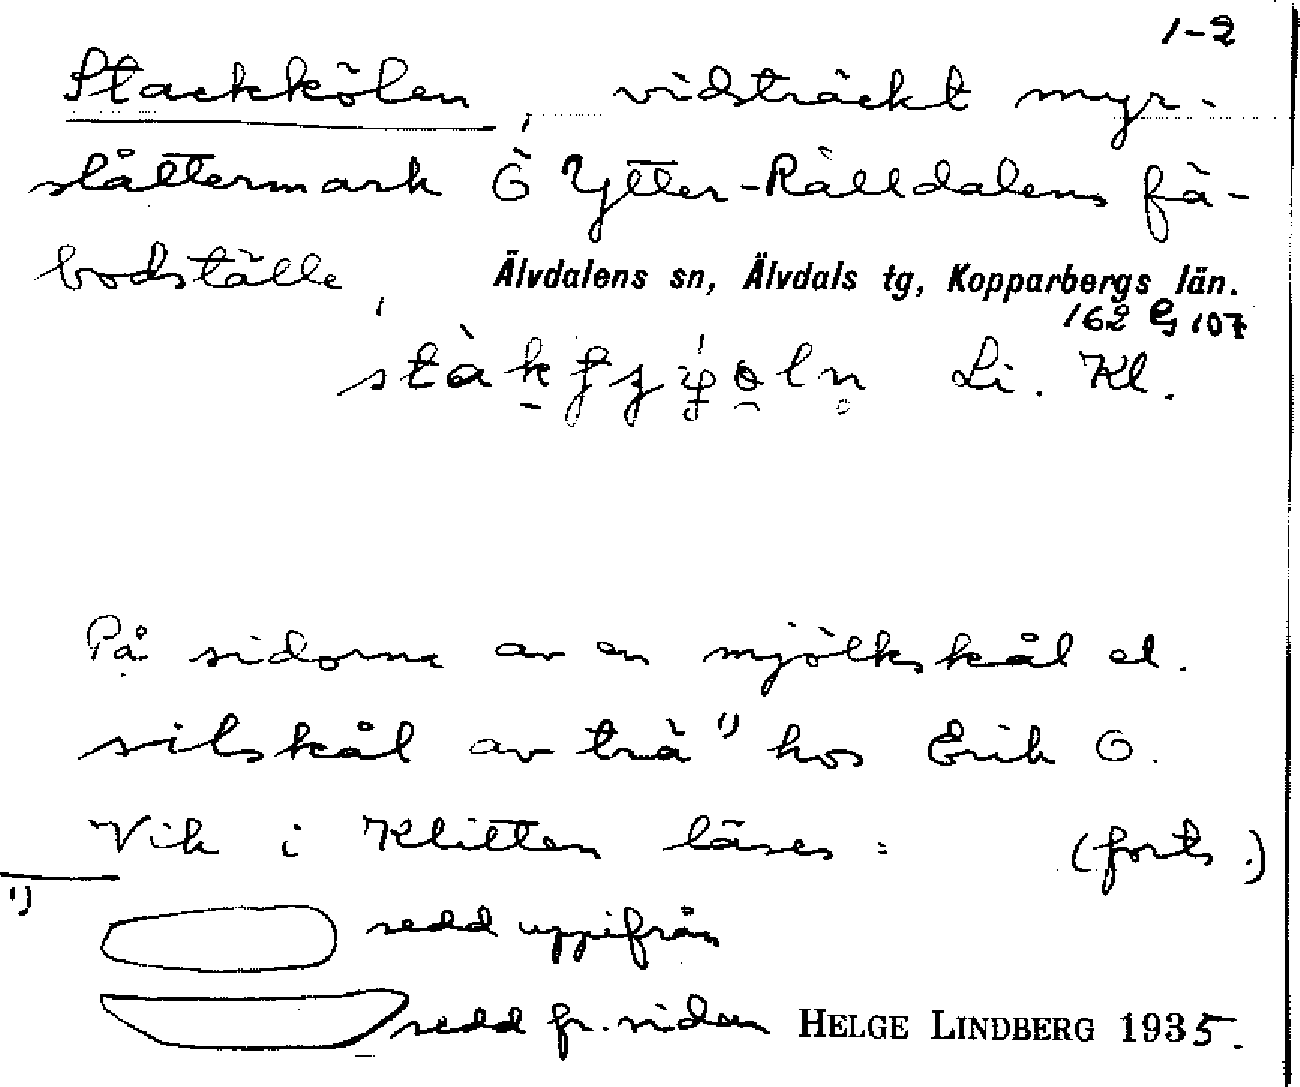 1-2
Stackkölen, vidsträckt myr-
slåttermark Ö Ytter-Rälldalens fä-
bodställe,
Älvdalens sn, Älvdals tg, Kopparbergs län.
162 G 107
Li. Kl.
På sidorna av en mjölkskål el.
silskål av trä 1) hos Erik O.
Vik i Klitten läses: (forts.)
1)
sedd uppifrån
sedd fr. sidan HELGE LINDBERG 1935.